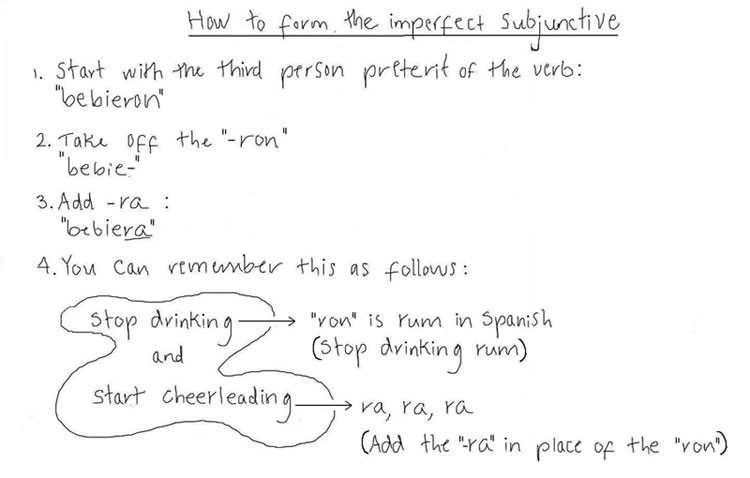 How to form the imperfect subjunctive
1. Start with the third person preterit of the verb:
"bebieron"
2. Take off the "-ron"
"bebie-"
3. Add -ra :
"bebiera"
4. You can remember this as follows:
Stop drinking → "ron" is rum in Spanish
(Stop drinking rum)
and
Start cheerleading → ra, ra, ra
(Add the "-ra" in place of the "ron")